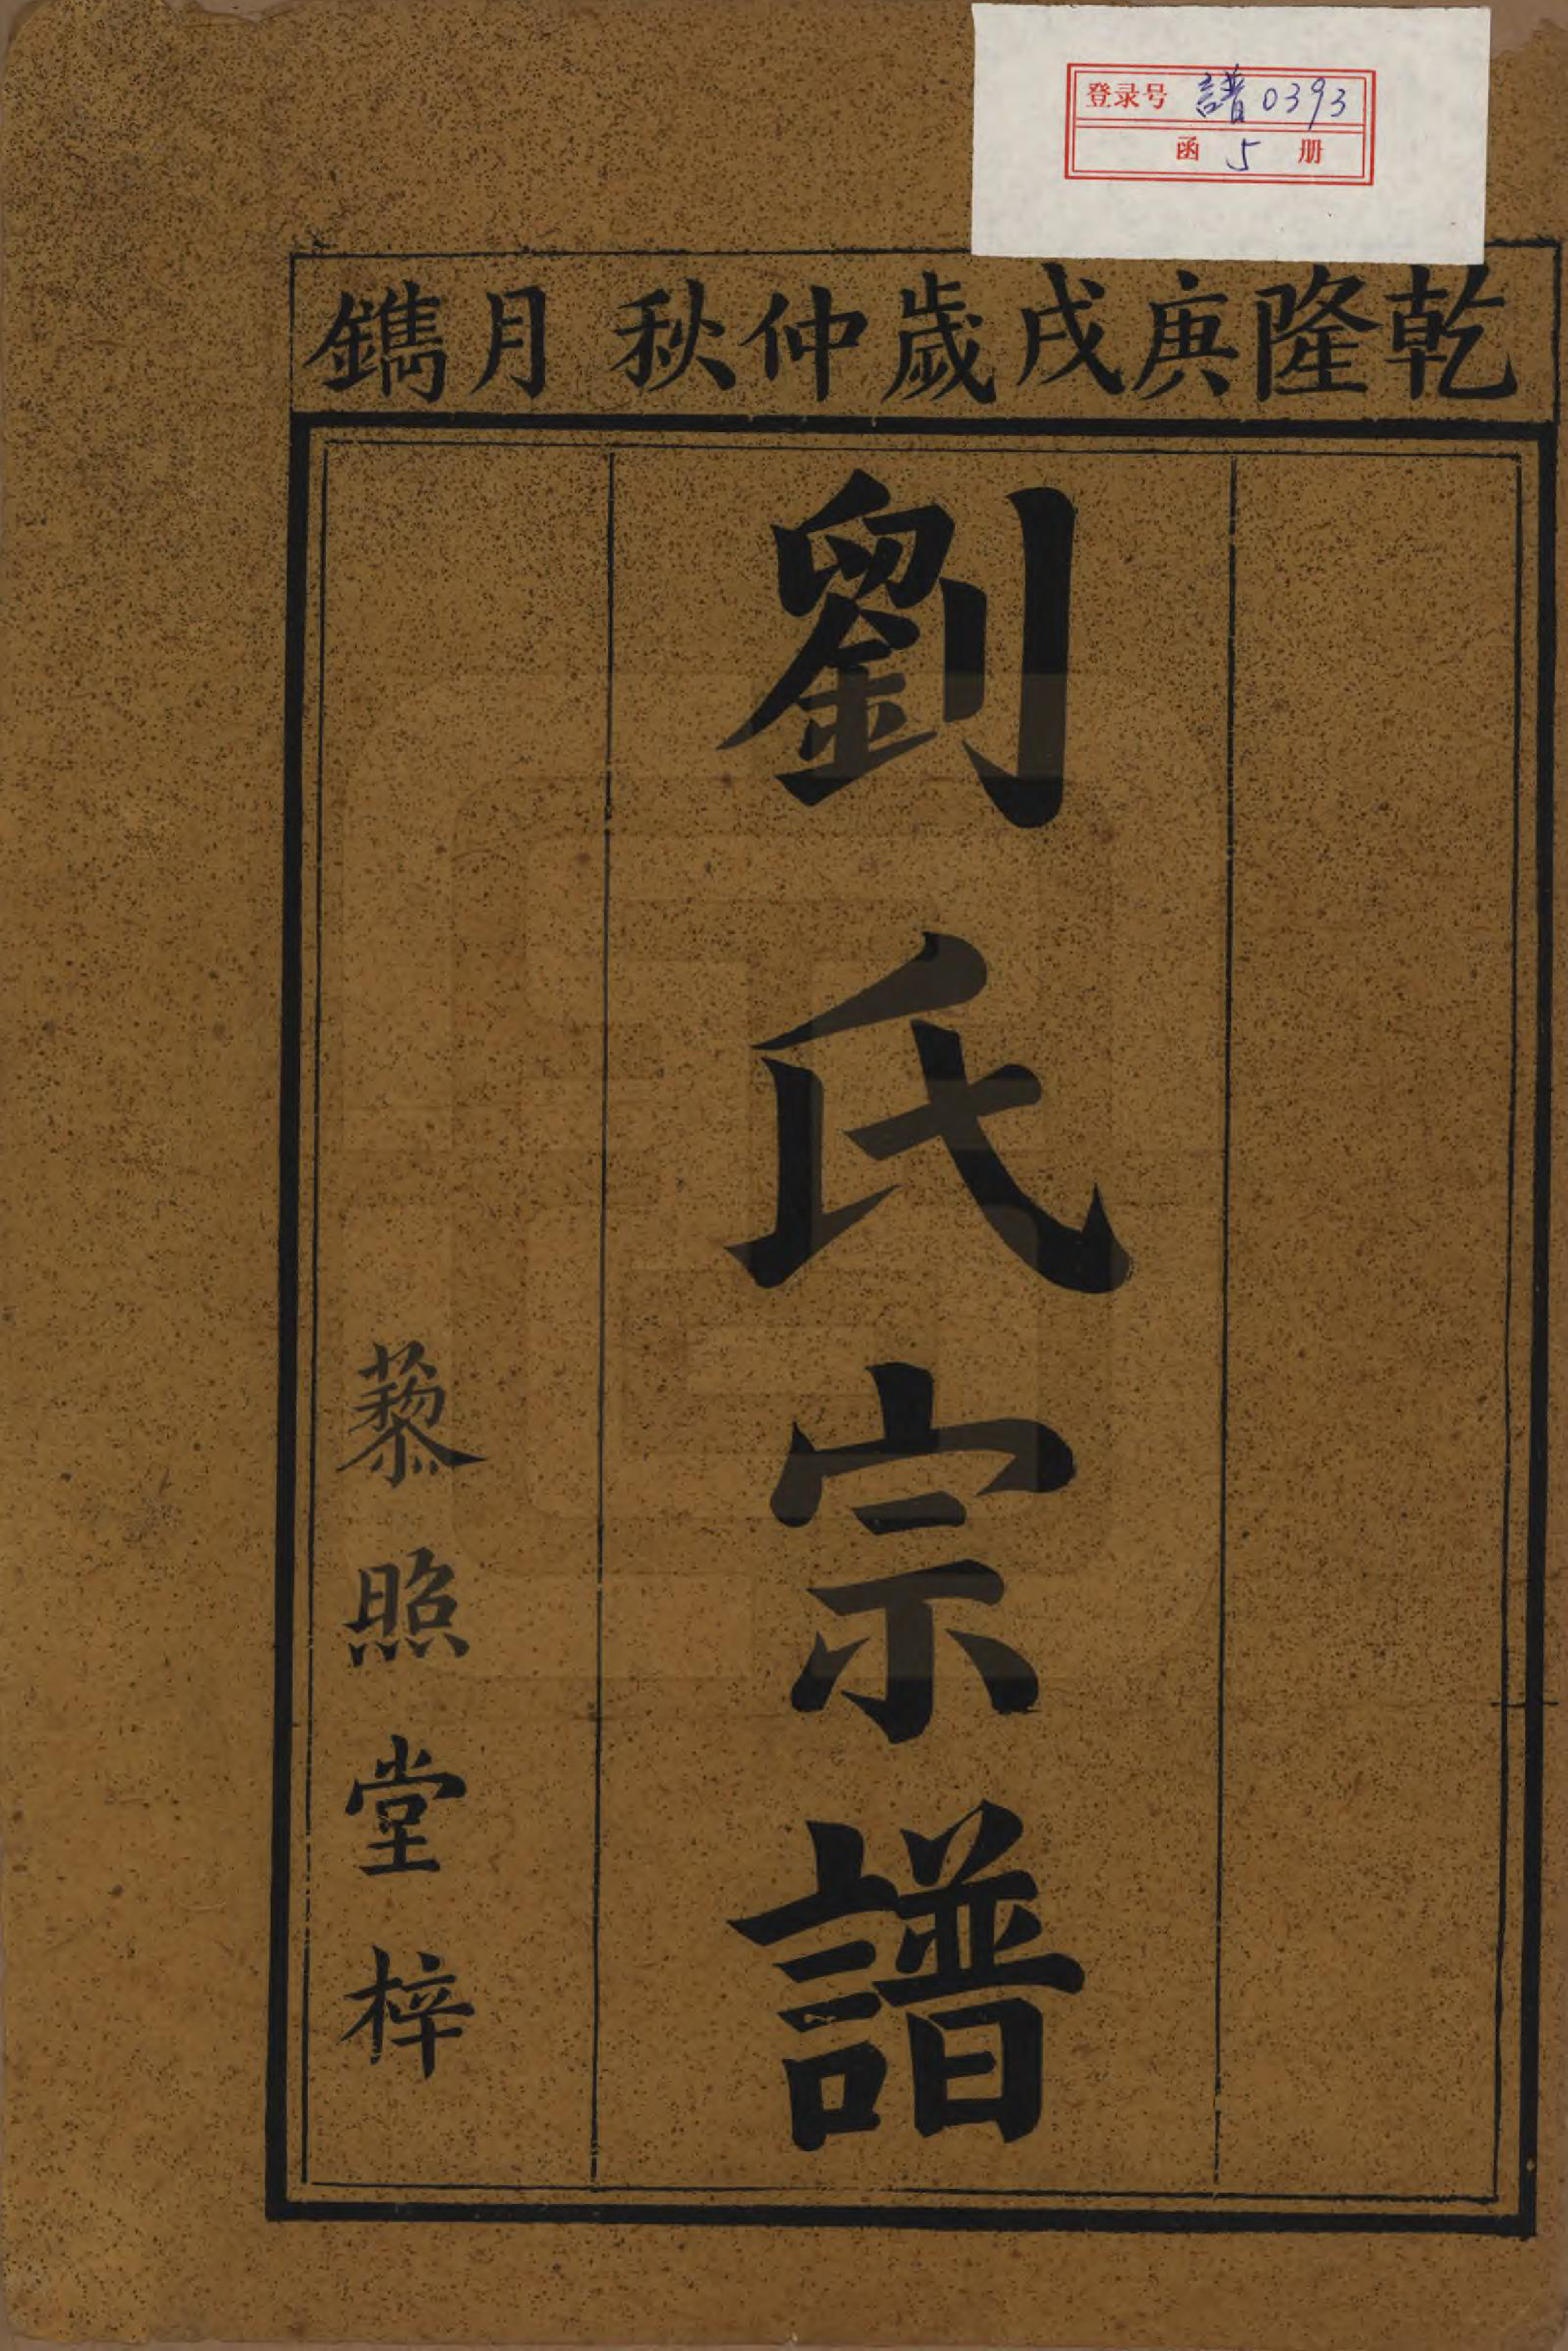 登录号 譜0393
函 5 册
乾隆庚戌歲仲秋月鐫
劉氏宗譜
藜照堂梓